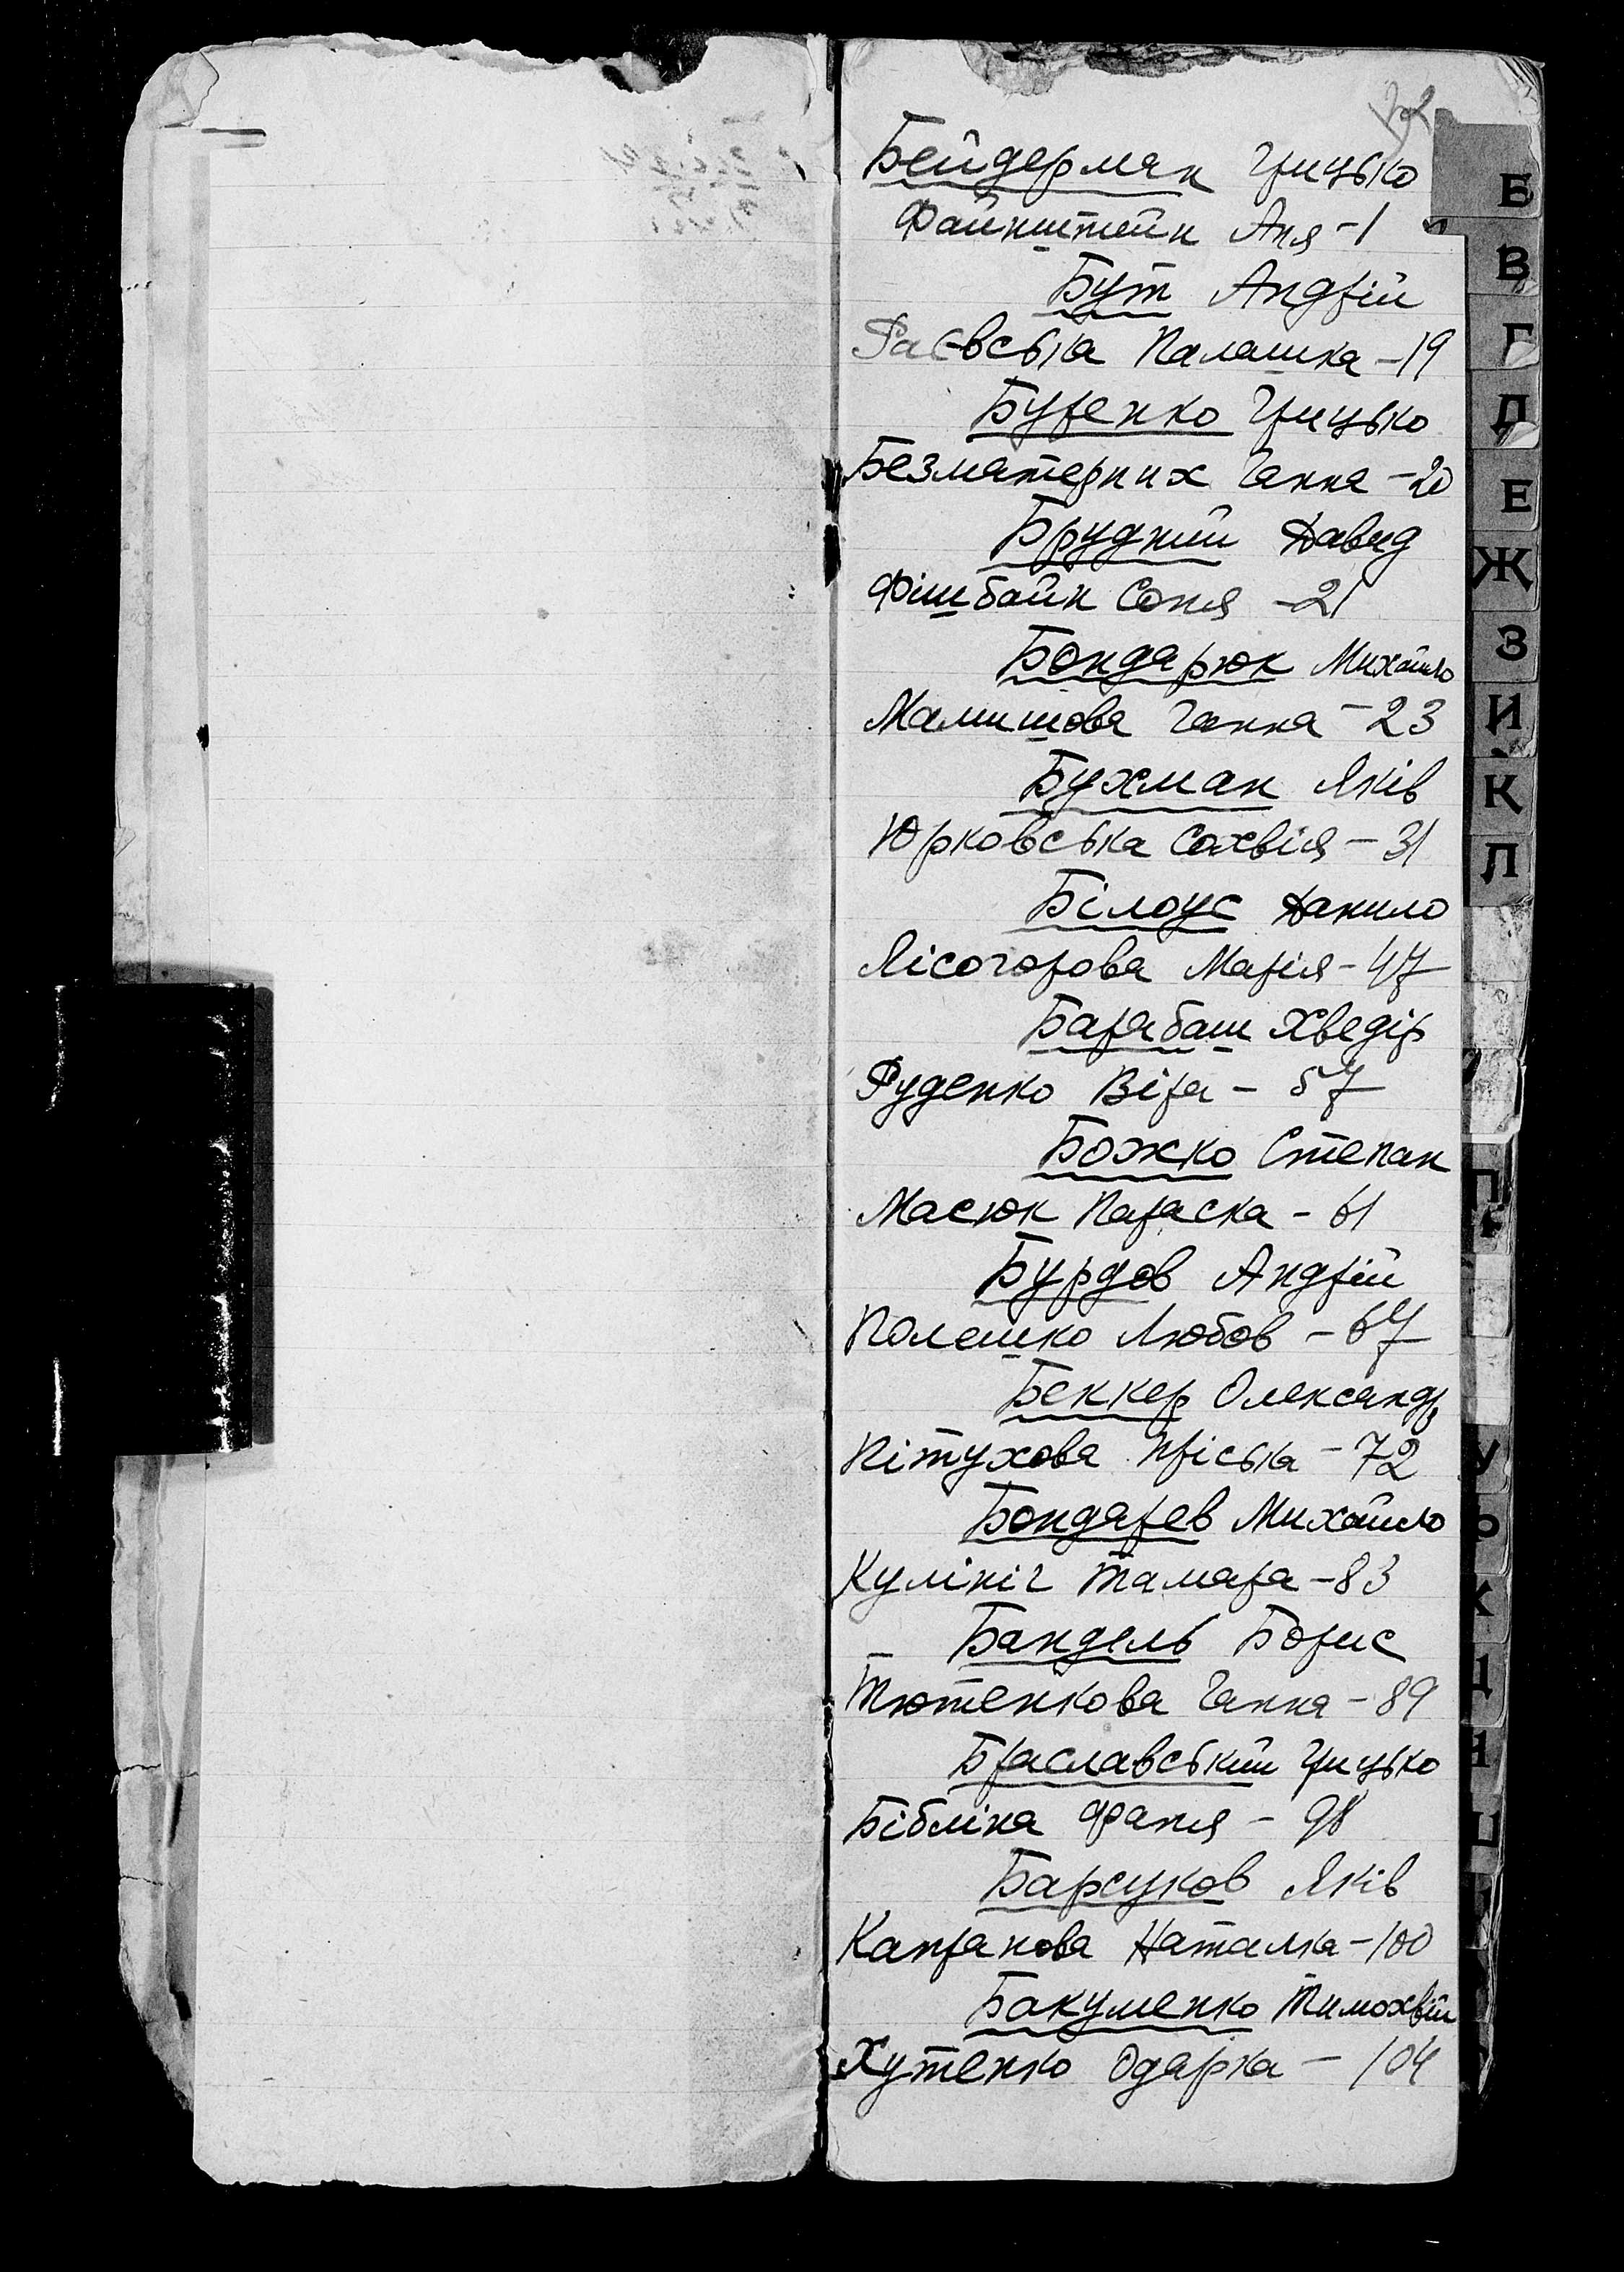 Бейдерман Грицько
Файнштейн Аня - 1
Бут Андрій
Раєвська Палашка - 19
Буренко Грицько
Безматерних Ганна - 20
Брудний Давид
Фішбайн Соня - 21
Бондарюк Михайло
Малишова Ганна - 23
Бухман Яків
Юрковська Сохвія - 31
Білоус Данило
Лісогорова Марія - 47
Барабаш Хведір
Руденко Віра - 57
Божко Степан
Масюк Параска - 61
Бурдов Андрій
Полешко Любов - 67
Беккер Олександр
Пітухова Пріська - 72
Бондарев Михайло
Кулініч Тамара - 83
Бандель Борис
Тютенкова Ганна - 89
Браславський Грицько
Бібліна Фаня - 98
Барсуков Яків
Капранова Наталка - 100
Бакуменко Тимохвій
Хутенко Одарка - 104
Б
В
Г
Д
Е
Ж
З
И
К
Л
П
У